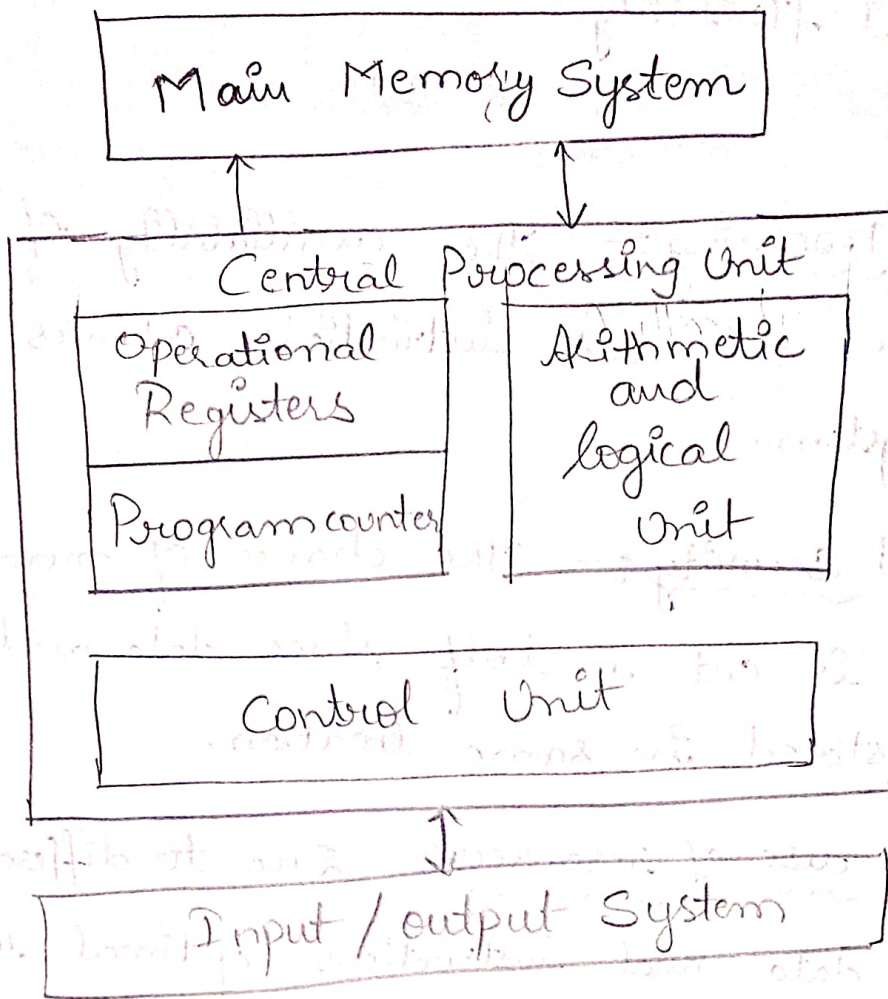 Main Memory System
Central Processing Unit
Operational
Registers
Program counter
Arithmetic
and
logical
Unit
Control Unit
Input / output System